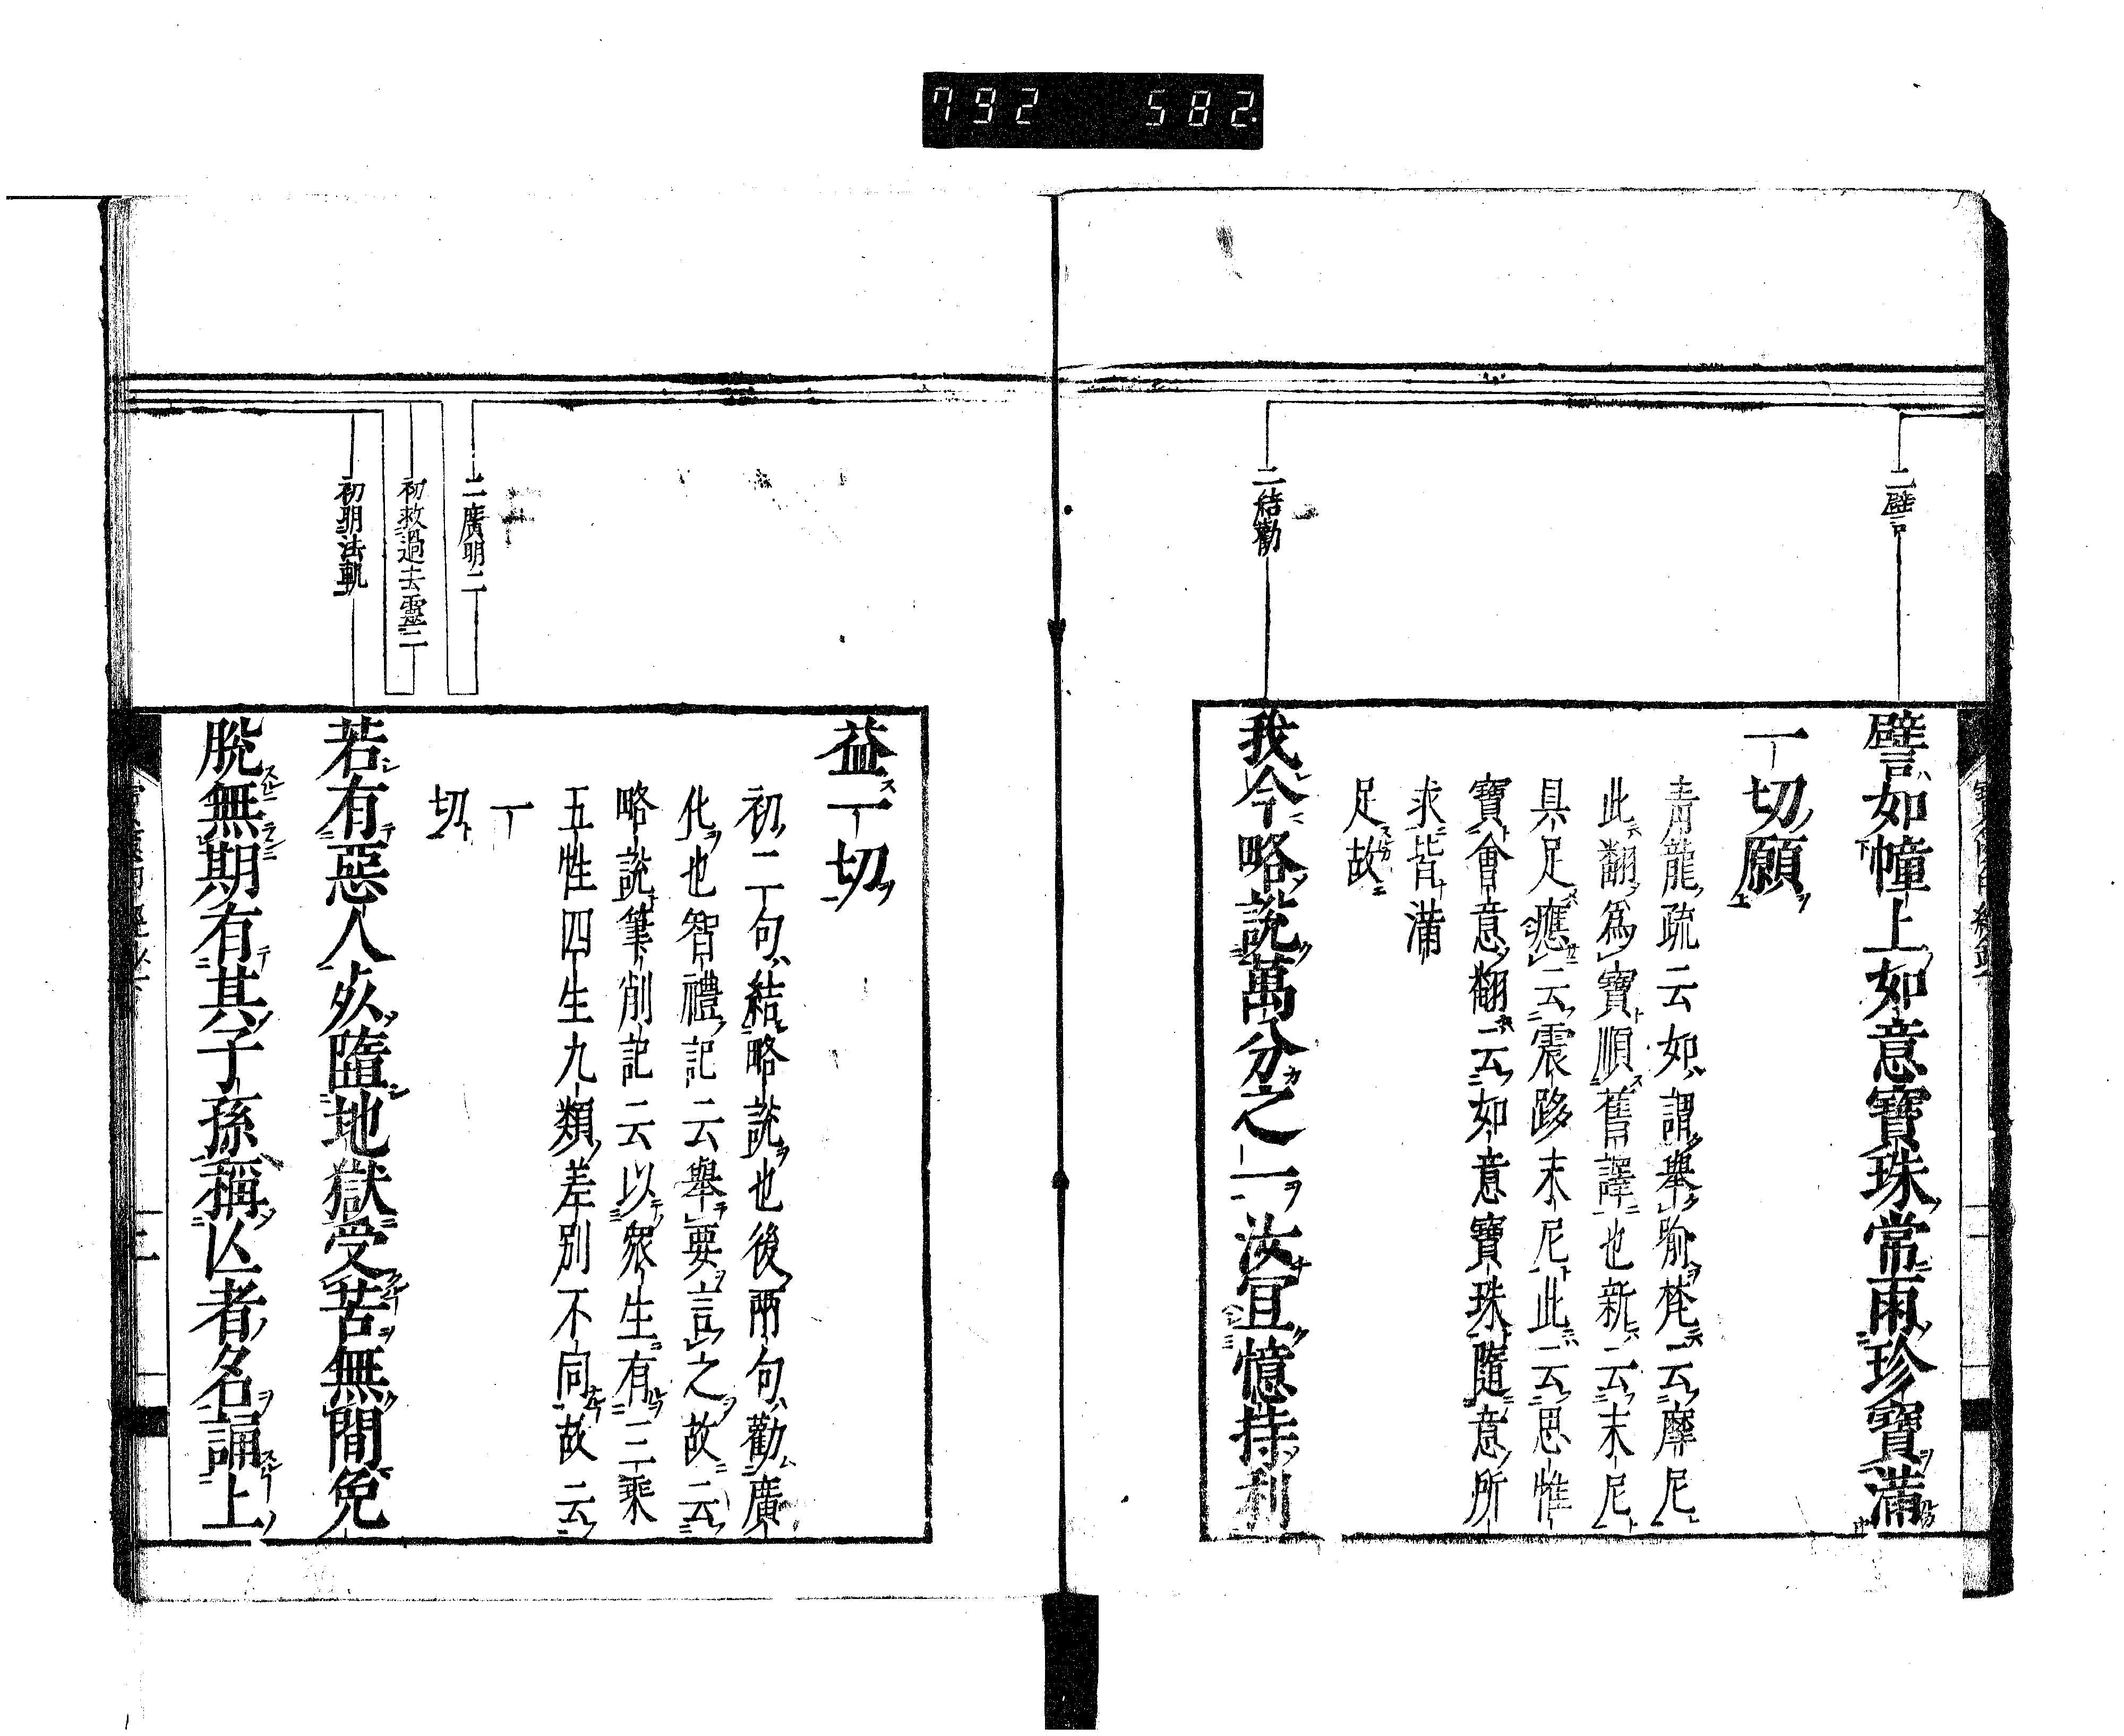 792 582
二譬
譬如幢上如意寶珠常雨珍寶滿
一切願
青龍疏云如謂舉喻梵云摩尼
此翻爲寶順舊譯也新云末尼
具足應云震跢末尼此云思惟
寶會意翻云如意寶珠隨意所
求皆滿
足故
二結勸
我今略說萬分之一汝宜憶持利
益一切
初二句結略說也後兩句勸廣
化也智禮記云舉要言之故云
略說筆削記云以衆生有三乘
五性四生九類差別不同故云
一
切
二廣明二
初救過去靈二
初明法軌
若有惡人必墮地獄受苦無間免
脫無期有其子孫稱亾者名誦上